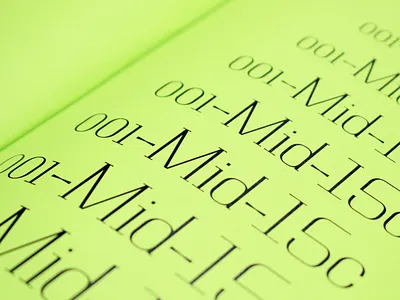 001
001-Mid
001-Mid-1
001-Mid-15c
001-Mid-15c
001-Mid-15c
Mid